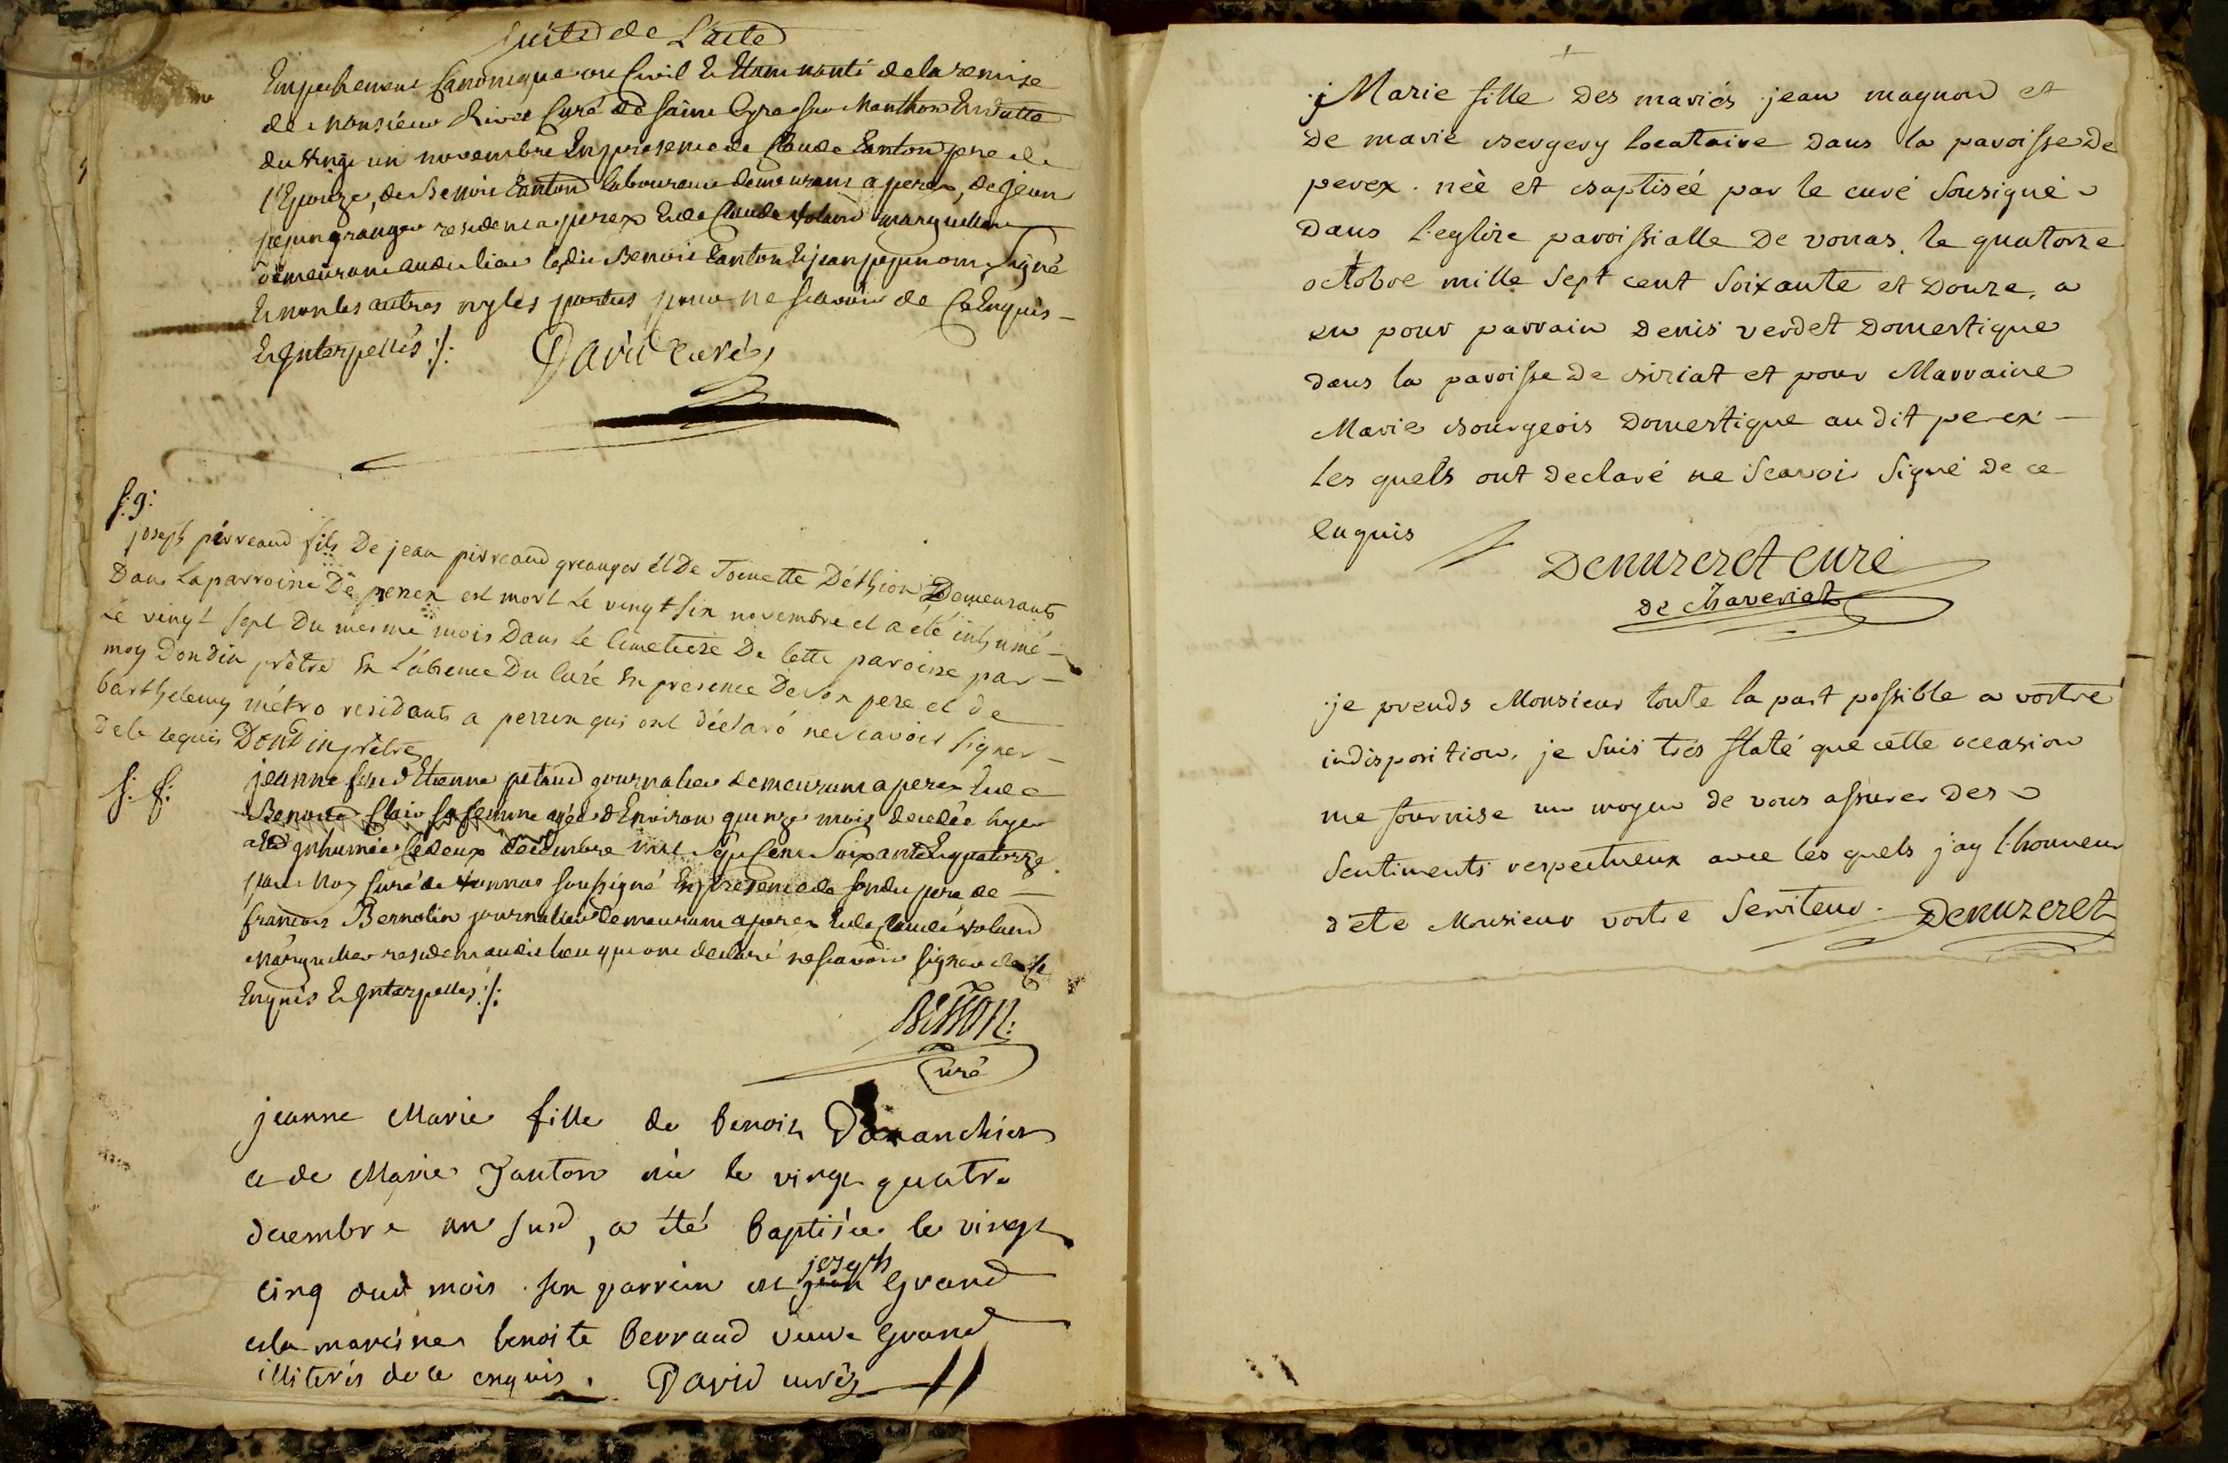 Suite de L'acte
Empechement Canonique ou Civil Et Etant nanti de la remise
de Monsieur Rivet Curé de Saint Cyr sur Manthon En datte
du vingt un novembre En presence de Claude Canton pere de
l'Epouze, de Benoit Canton laboureur demeurant a perex, de jean
pepin granger resident a perex Et de Claude Voland marguillier
demeurant audit lieu ledit Benoit Canton Et jean pepin ont signé
Et non les autres ny les parties pour ne scavoir de Ce Enquis
Et Interpellés :/:
David Curé
S: g:
joseph pérreaud fils De jean pirreaud greanger et De Toinette Déthion Demeurants
Dans La parroisse De perex est mort Le vingt six novembre et a été inhumé
Le vingt sept Du mesme mois Dans Le Cimetiere De Cette paroisse par
moy Dondin prêtre En L'absence Du Curé En presence De son pere et de
barthelemy métro residants a perrex qui ont déclaré ne scavoir signer
De le requis Dondin prêtre
S: f:
jeanne fille d'Etienne petaud journalier demeurant a perex Et de
Benoite Clair sa femme agée d'Environ quinze mois decedée hyer
a été Inhumée le deux decembre mil sept Cent Soixante Et quatorze
par Moy Curé de Vonnas soussigné En presence de sondit pere de
francois Bernolin journalier demeurant a perex Et de Claude Voland
marguillier resident audit lieu qui ont declaré ne scavoir signer de Ce
Enquis Et Interpellés :/:
Curé
jeanne Marie fille de benoit Davanchier
et de Marie Janton née le vingt quatre
decembre an susd, a été baptisée le vingt
cinq dud mois . son parrein est joseph Grand
et la mareine benoite berraud veuve Grand
illiterés de ce enquis . David curé
Marie fille Des mariés jean magnon et
De marie Bergery locataire Dans la paroisse De
perex . néè et Baptiséé par le curé Sousigné
Dans l'eglise paroissialle De vonas le quatorze
octobre mille Sept cent Soixante et Douze, a
eu pour parrain Denis verdet Domestique
dans la paroisse De Biziat et pour Marraine
Marie Bourgeois Domestique au dit perex
les quels ont Declaré ne Scavoir Signé De ce
Enquis
Denuzeret curé
de chaveriat
je prends Monsieur toute la part possible a vostre
indisposition, je suis trés flaté que cette occasion
me fournise un moyen de vous assurer des
Sentiments respectueux avec les quels j'ay l'honneur
d'ete Monsieur vostre Serviteur . Denuzeret